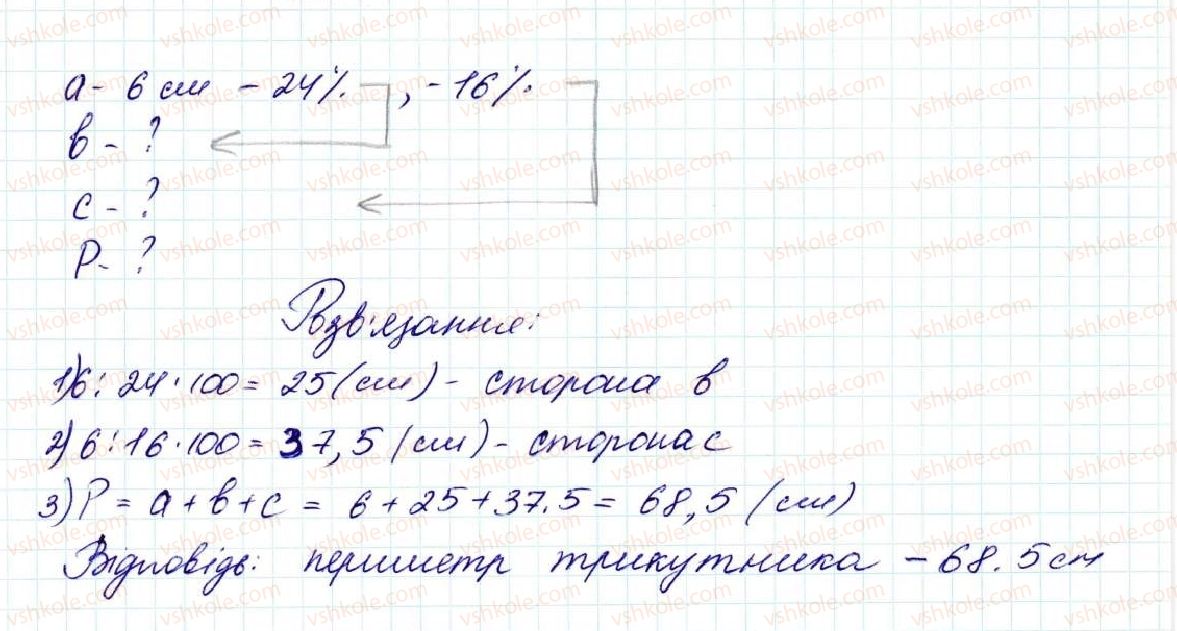 а - 6 см - 24%, - 16%
в - ?
с - ?
Р - ?
Розв'язання:
1) 6 : 24 · 100 = 25 (см) - сторона в
2) 6 : 16 · 100 = 37,5 (см) - сторона с
3) Р = а + в + с = 6 + 25 + 37.5 = 68,5 (см)
Відповідь: периметр трикутника - 68.5 см
vshkole.com